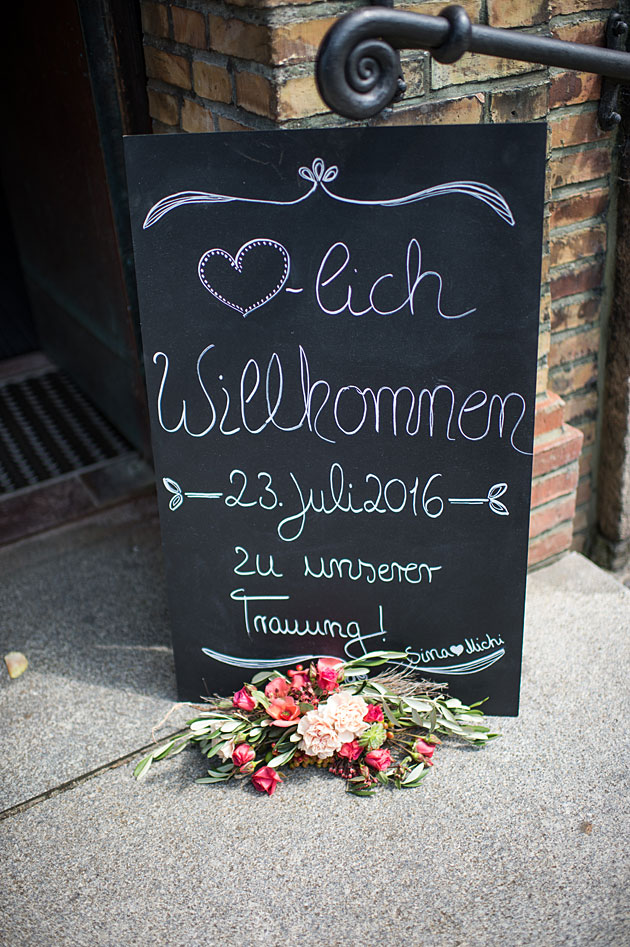 ♡-lich
Willkommen
23. Juli 2016
zu unserer
Trauung!
Sina♥Michi